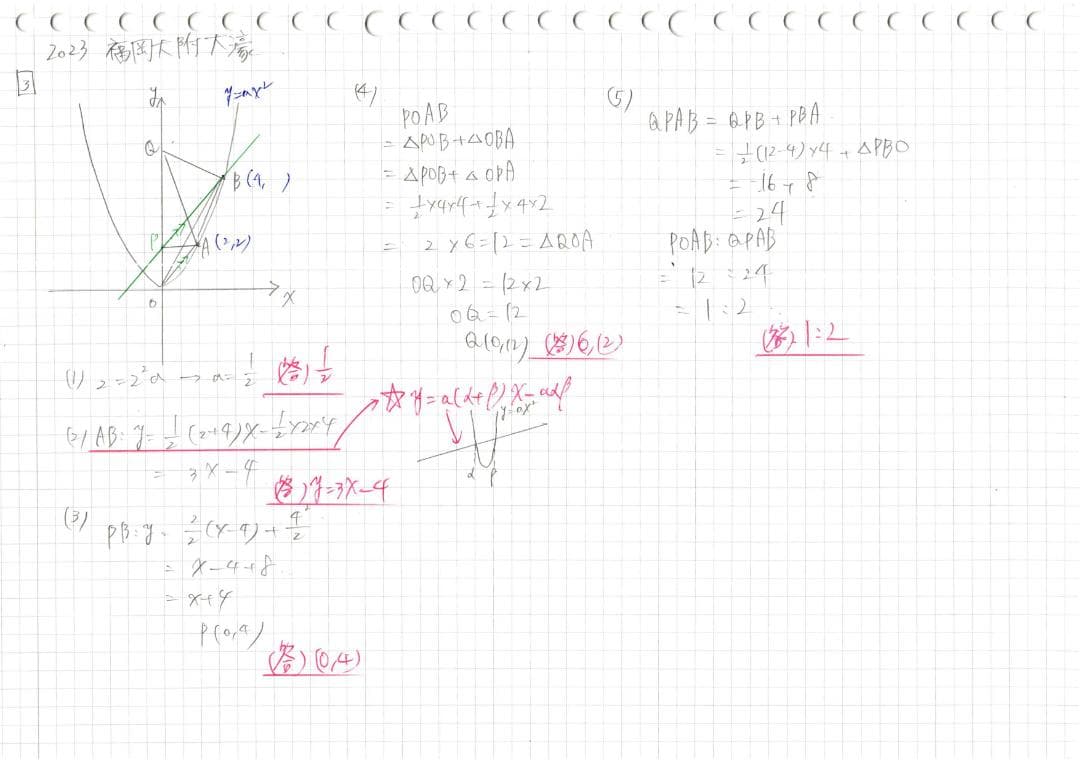 2023 福岡大附大濠
3
y
y=ax²
Q
B(4, )
P
A(2,2)
O
x
(1) 2=2²a → a=1/2 (答) 1/2
(2) AB: y=1/2(2+4)x-1/2×2×4
= 3x-4
(答) y=3x-4
☆ y=a(α+β)x-aαβ
y=ax²
α β
(3) PB: y= 2/2(x-4)+4²/2
= x-4+8
= x+4
P(0,4)
(答) (0,4)
(4)
POAB
= △POB+△OBA
= △POB+△OPA
= 1/2×4×4+1/2×4×2
= 2×6=12=△QOA
OQ×2=12×2
OQ=12
Q(0,12) (答) (0,12)
(5)
QPAB = QPB+PBA
= 1/2(12-4)×4+△PBO
= 16+8
= 24
POAB:QPAB
= 12:24
= 1:2
(答) 1:2